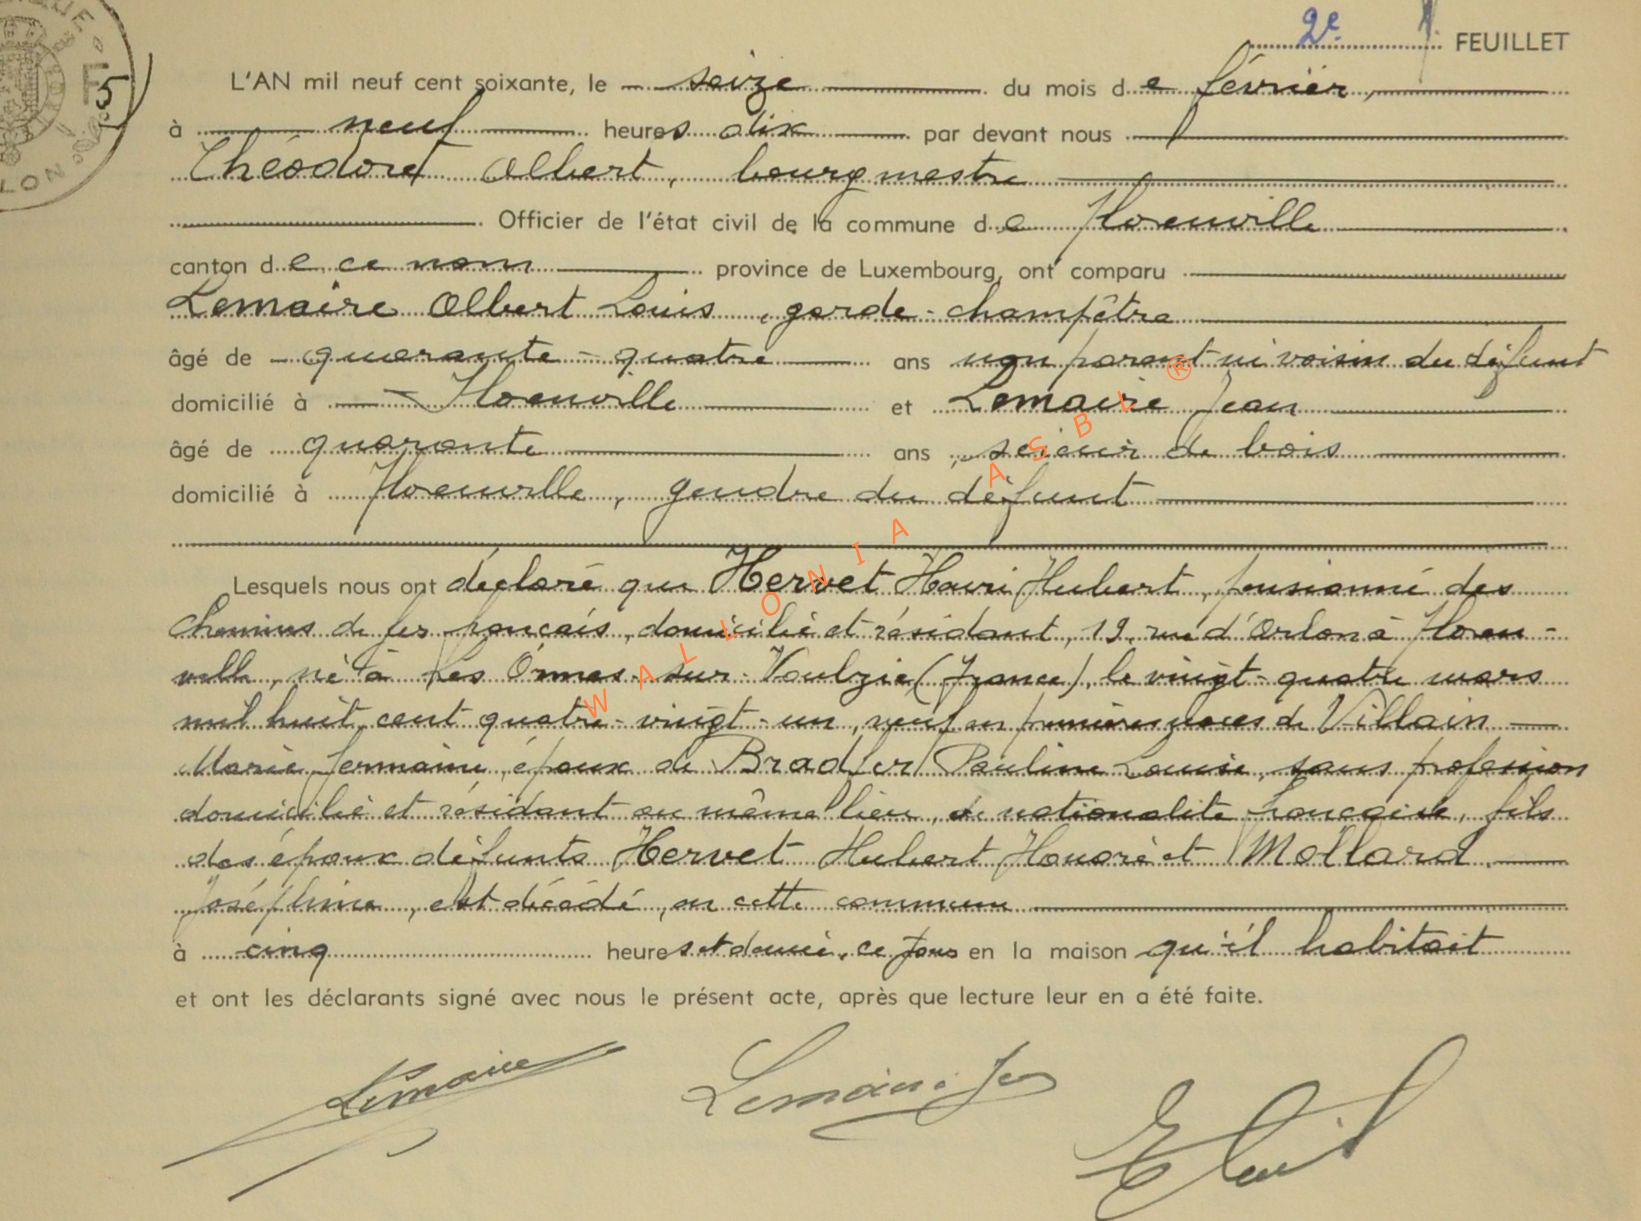 2e FEUILLET
L'AN mil neuf cent soixante, le seize du mois de février,
à neuf heures dix par devant nous
Théodore Albert, bourgmestre
Officier de l'état civil de la commune de Florenville
canton de ce nom province de Luxembourg, ont comparu
Lemaire Albert Louis, garde-champêtre
âgé de quarante-quatre ans non parent ni voisin du défunt
domicilié à Florenville et Lemaire Jean
âgé de quarante ans, scieur de bois
domicilié à Florenville, gendre du défunt
Lesquels nous ont déclaré que Hervet Henri Hubert, pensionné des
chemins de fer français, domicilié et résidant, 19, rue d'Arlon à Floren-
ville, né à Les Ormes-sur-Voulzie (France), le vingt-quatre mars
mil huit cent quatre-vingt-un, veuf en premières noces de Villain
Marie Germaine, époux de Bradfer Pauline Louise, sans profession
domicilié et résidant au même lieu, de nationalité française, fils
des époux défunts Hervet Hubert Honoré et Mollard
Joséphine, est décédé, en cette commune
à cinq heures et demie, ce jour en la maison qu'il habitait
et ont les déclarants signé avec nous le présent acte, après que lecture leur en a été faite.
Lemaire Lemaire Jean
WALLONIA ASBL ®